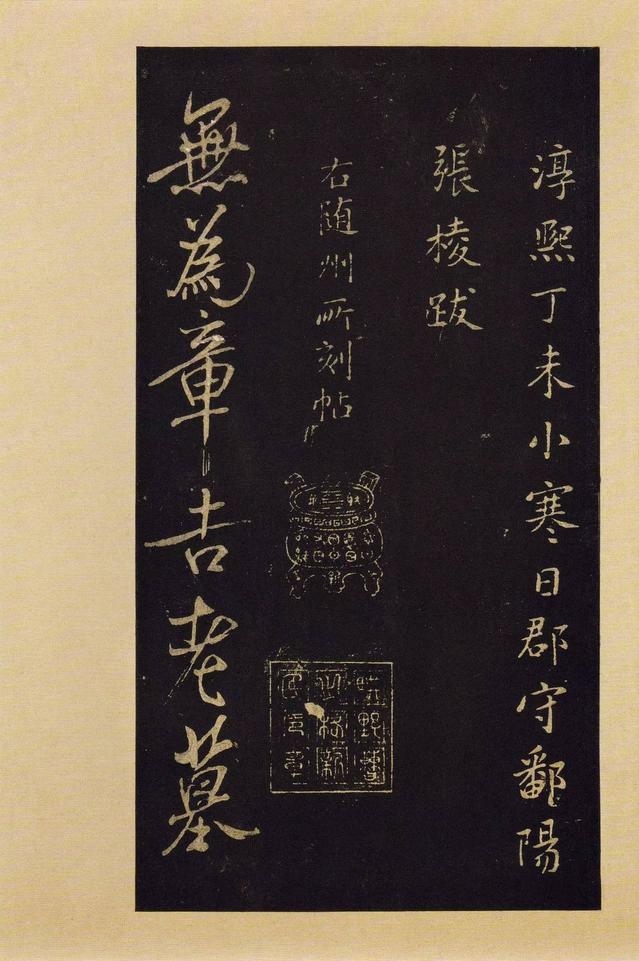 淳熙丁未小寒日郡守鄱陽
張棱跋
右随州所刻帖
無為章吉老墓